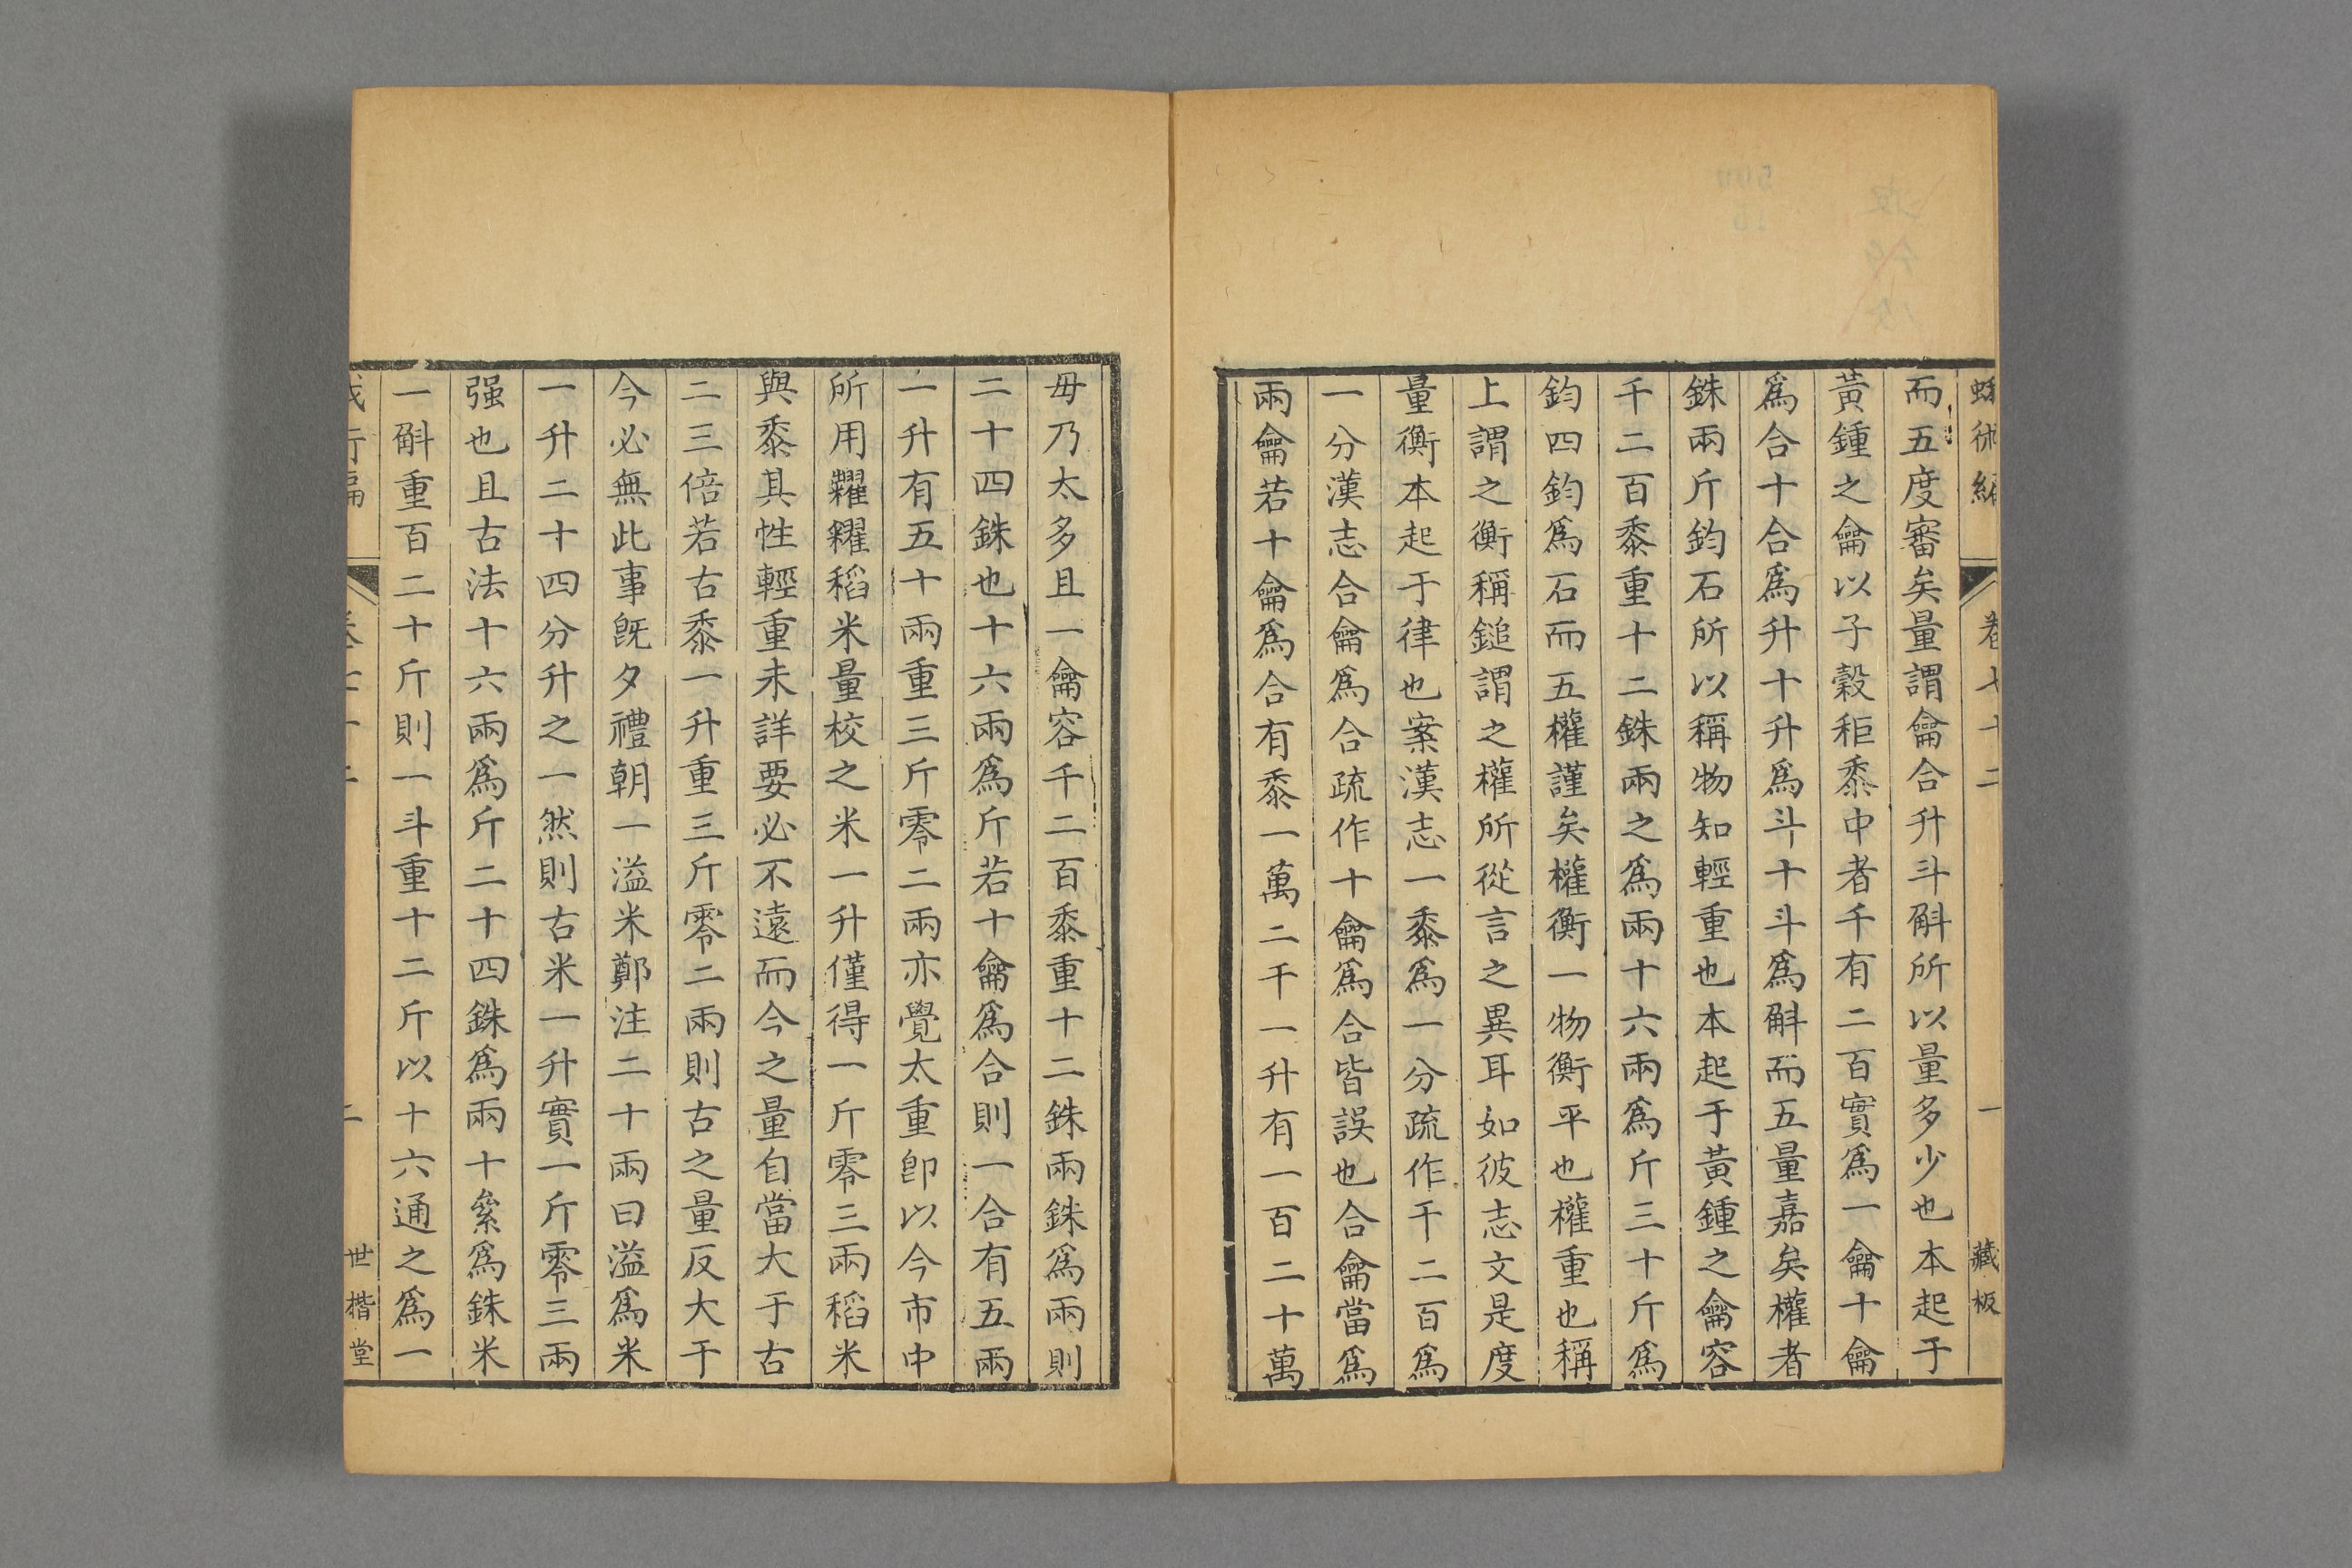 而五度審矣量謂龠合升斗斛所以量多少也本起于
黃鍾之龠以子穀秬黍中者千有二百實爲一龠十龠
爲合十合爲升十升爲斗十斗爲斛而五量嘉矣權者
銖兩斤鈞石所以稱物知輕重也本起于黃鍾之龠容
千二百黍重十二銖兩之爲兩十六兩爲斤三十斤爲
鈞四鈞爲石而五權謹矣權衡一物衡平也權重也稱
上謂之衡稱鎚謂之權所從言之異耳如彼志文是度
量衡本起于律也案漢志一黍爲一分疏作千二百爲
一分漢志合龠爲合疏作十龠爲合皆誤也合龠當爲
兩龠若十龠爲合有黍一萬二千一升有一百二十萬
毋乃太多且一龠容千二百黍重十二銖兩銖爲兩則
二十四銖也十六兩爲斤若十龠爲合則一合有五兩
一升有五十兩重三斤零二兩亦覺太重卽以今市中
所用糶糴稻米量校之米一升僅得一斤零三兩稻米
與黍其性輕重未詳要必不遠而今之量自當大于古
二三倍若古黍一升重三斤零二兩則古之量反大于
今必無此事旣夕禮朝一溢米鄭注二十兩曰溢爲米
一升二十四分升之一然則古米一升實一斤零三兩
强也且古法十六兩爲斤二十四銖爲兩十絫爲銖米
一斛重百二十斤則一斗重十二斤以十六通之爲一
蛾術編 卷七十二 一 藏板
卷七十二 二 世楷堂